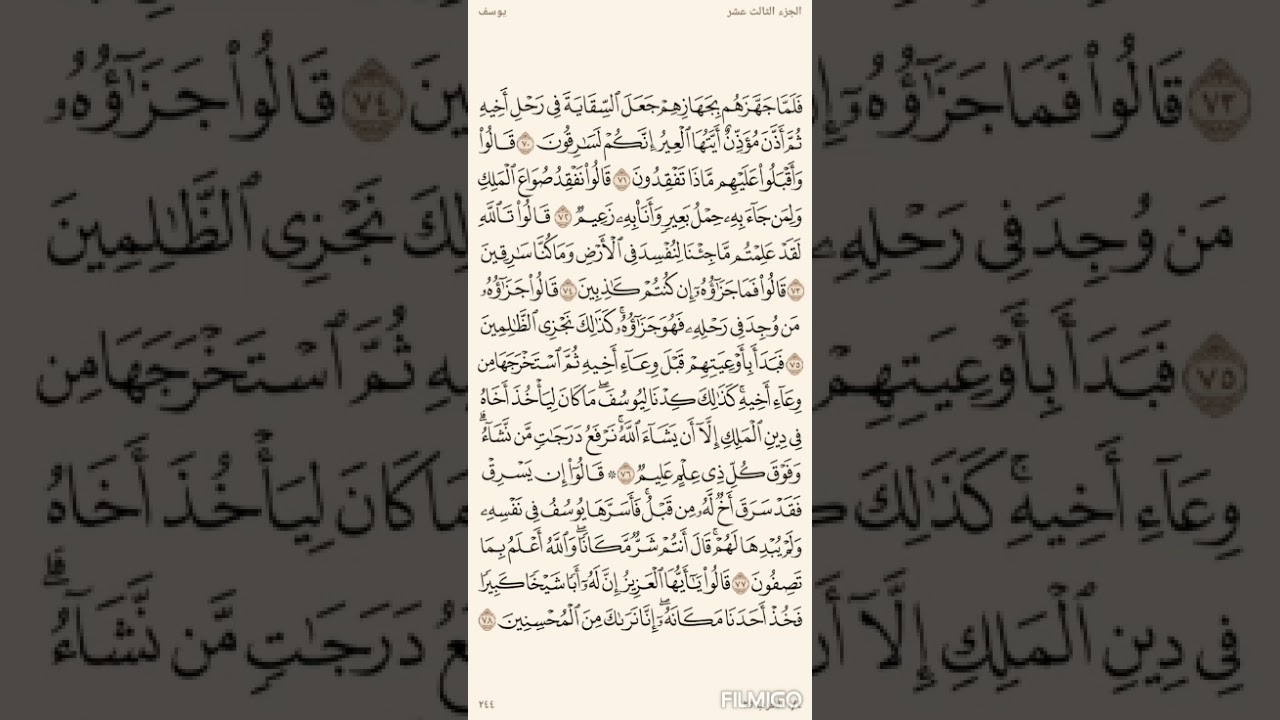 الجزء الثالث عشر
يوسف
فَلَمَّا جَهَّزَهُم بِجَهَازِهِمْ جَعَلَ ٱلسِّقَايَةَ فِى رَحْلِ أَخِيهِ
ثُمَّ أَذَّنَ مُؤَذِّنٌ أَيَّتُهَا ٱلْعِيرُ إِنَّكُمْ لَسَٰرِقُونَ ٧٠ قَالُوا۟
وَأَقْبَلُوا۟ عَلَيْهِم مَّاذَا تَفْقِدُونَ ٧١ قَالُوا۟ نَفْقِدُ صُوَاعَ ٱلْمَلِكِ
وَلِمَن جَآءَ بِهِۦ حِمْلُ بَعِيرٍ وَأَنَا۠ بِهِۦ زَعِيمٌ ٧٢ قَالُوا۟ تَٱللَّهِ
لَقَدْ عَلِمْتُم مَّا جِئْنَا لِنُفْسِدَ فِى ٱلْأَرْضِ وَمَا كُنَّا سَٰرِقِينَ
٧٣ قَالُوا۟ فَمَا جَزَٰٓؤُهُۥٓ إِن كُنتُمْ كَٰذِبِينَ ٧٤ قَالُوا۟ جَزَٰٓؤُهُۥ
مَن وُجِدَ فِى رَحْلِهِۦ فَهُوَ جَزَٰٓؤُهُۥ ۚ كَذَٰلِكَ نَجْزِى ٱلظَّٰلِمِينَ
٧٥ فَبَدَأَ بِأَوْعِيَتِهِمْ قَبْلَ وِعَآءِ أَخِيهِ ثُمَّ ٱسْتَخْرَجَهَا مِن
وِعَآءِ أَخِيهِ ۚ كَذَٰلِكَ كِدْنَا لِيُوسُفَ ۖ مَا كَانَ لِيَأْخُذَ أَخَاهُ
فِى دِينِ ٱلْمَلِكِ إِلَّآ أَن يَشَآءَ ٱللَّهُ ۚ نَرْفَعُ دَرَجَٰتٍ مَّن نَّشَآءُ ۗ
وَفَوْقَ كُلِّ ذِى عِلْمٍ عَلِيمٌ ٧٦ ۞ قَالُوٓا۟ إِن يَسْرِقْ
فَقَدْ سَرَقَ أَخٌ لَّهُۥ مِن قَبْلُ ۚ فَأَسَرَّهَا يُوسُفُ فِى نَفْسِهِۦ
وَلَمْ يُبْدِهَا لَهُمْ ۚ قَالَ أَنتُمْ شَرٌّ مَّكَانًا ۖ وَٱللَّهُ أَعْلَمُ بِمَا
تَصِفُونَ ٧٧ قَالُوا۟ يَٰٓأَيُّهَا ٱلْعَزِيزُ إِنَّ لَهُۥٓ أَبًا شَيْخًا كَبِيرًا
فَخُذْ أَحَدَنَا مَكَانَهُۥٓ ۖ إِنَّا نَرَىٰكَ مِنَ ٱلْمُحْسِنِينَ ٧٨
٢٤٤
FILMIGO